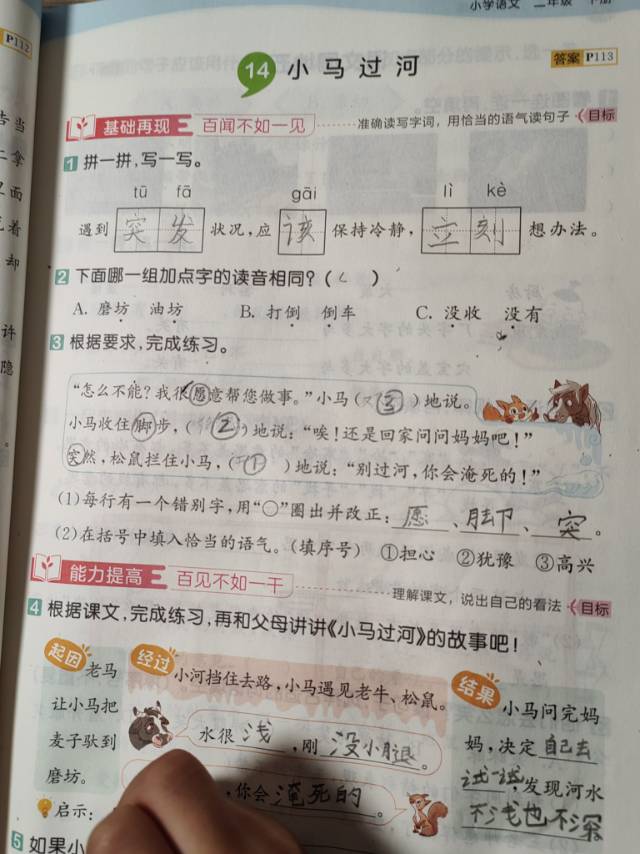 小学语文 二年级 下册
P112
14 小马过河
答案 P113
基础再现 百闻不如一见 准确读写字词，用恰当的语气读句子 目标
1 拼一拼，写一写。
tū fā gāi lì kè
遇到 突发 状况，应 该 保持冷静， 立刻 想办法。
2 下面哪一组加点字的读音相同？（ ）
A. 磨坊 油坊 B. 打倒 倒车 C. 没收 没有
3 根据要求，完成练习。
“怎么不能？我很愿意帮您做事。”小马（ ③ ）地说。
小马收住脚步，（ ② ）地说：“唉！还是回家问问妈妈吧！”
突然，松鼠拦住小马，（ ① ）地说：“别过河，你会淹死的！”
(1)每行有一个错别字，用“○”圈出并改正：愿、脚、突。
(2)在括号中填入恰当的语气。（填序号） ①担心 ②犹豫 ③高兴
能力提高 百见不如一干 理解课文，说出自己的看法 目标
4 根据课文，完成练习，再和父母讲讲《小马过河》的故事吧！
起因 老马
让小马把
麦子驮到
磨坊。
经过 小河挡住去路，小马遇见老牛、松鼠。
水很 浅，刚 没小腿。
，你会 淹死的。
结果 小马问完妈
妈，决定 自己去
试一试，发现河水
不浅也不深
启示：
5 如果小
告当
二拿
里面
着
却
许
隐